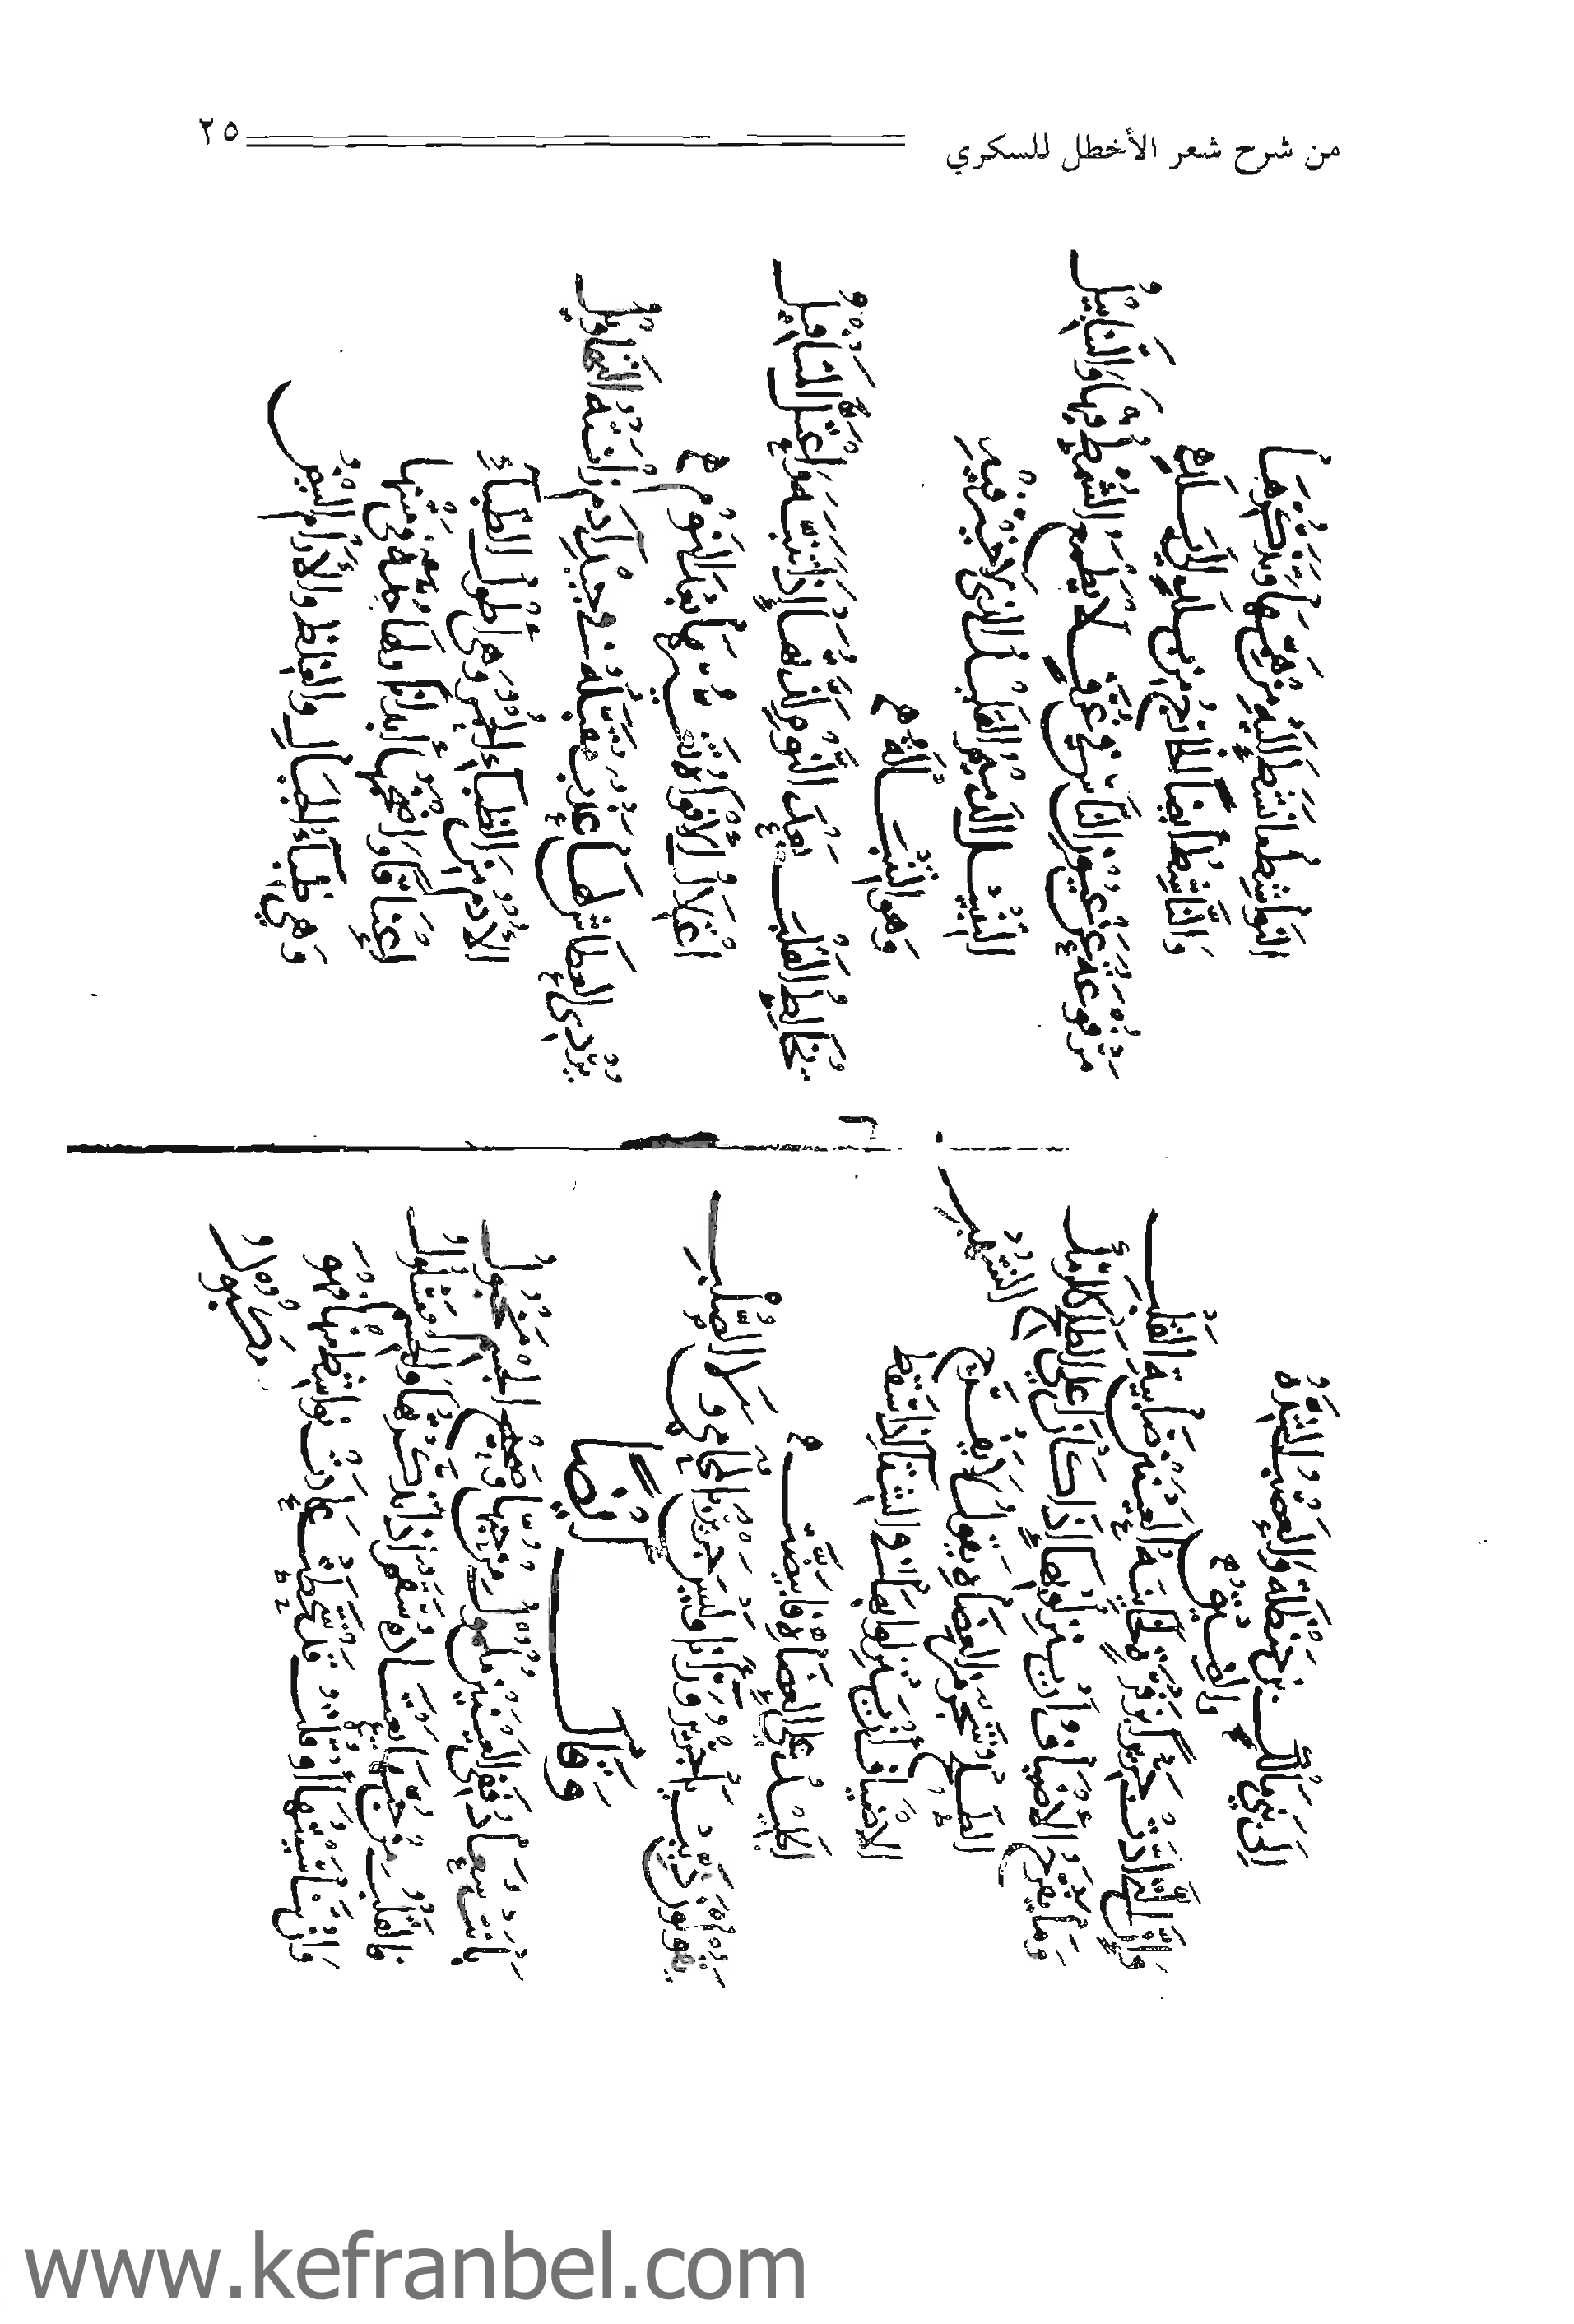 من شرح شعر الأخطل للسكري ٢٥
إلى بني مالك بن حنظلة والعصب الشدة
والضيق
وإن التي أدت جرير بزفرة لخائنة العينين ضابية القلب
وما يفرح الأضياف أن ينزلوا بها إذا كان أعلى الطلح الشهب
الطلح شجر من العضاه يقول لا يفرح
الأضياف أن ينزلوا بها في الشتاء إذا سقط
الجليد على العضاه فابيضت
يقولون ذبب يا جرير وراءنا وليس جرير بالمحامي ولا الصلب
وقال أيضًا
بانت سعاد ففي العينين ملمول من حبها وصحيح الجسم مخبول
فالقلب من حبها يعتاده سقم إذا تذكرتها والجسم
وإن تناسيتها أو قلت قد شحطت عادت نواشط منها فهو مكبول
النواشط ما نشط إليه من همها وتذكرها
والناشط أيضا الخارج من بلد إلى بلد
مرفوعة عن عيون الناس في غرف لا يطمع الشمط فيها والتنابيل
التنبيل الدميم القليل الذي لا خير فيه
وهو التنبالة
يخالط القلب بعد النوم لذتها إذا تنبه واعتل المتافيل
اعتلال الأفواه تغيرها بعد النوم
يروي العطاش لها عذب مقبله في جيد آدم زانته التهاويل
الأدم من الظباء الحمر وهي أطول الظباء
أعناقا وأضخمها أبدانا ولها في متنها
وهي ظباء الجبال والغلظ والآرام البيض
www.kefranbel.com